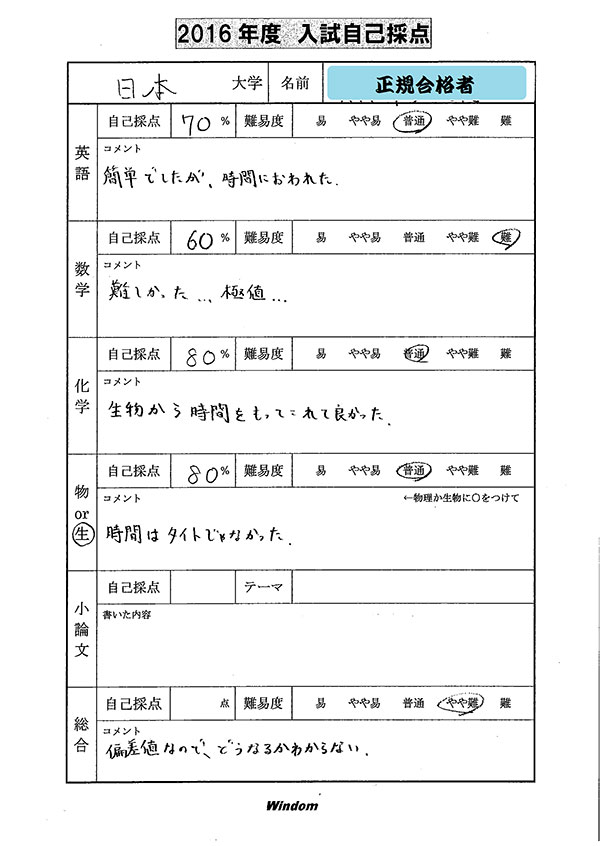 2016年度 入試自己採点
日本 大学 名前 正規合格者
英語 自己採点 70 % 難易度 易 やや易 普通 やや難 難
コメント
簡単でしたが、時間におわれた.
数学 自己採点 60 % 難易度 易 やや易 普通 やや難 難
コメント
難しかった…、極値…
化学 自己採点 80 % 難易度 易 やや易 普通 やや難 難
コメント
生物から時間をもってこれて良かった.
物or生 自己採点 80 % 難易度 易 やや易 普通 やや難 難
コメント ←物理か生物に○をつけて
時間はタイトじゃなかった.
小論文 自己採点 テーマ
書いた内容
総合 自己採点 点 難易度 易 やや易 普通 やや難 難
コメント
偏差値なので、どうなるかわからない.
Windom